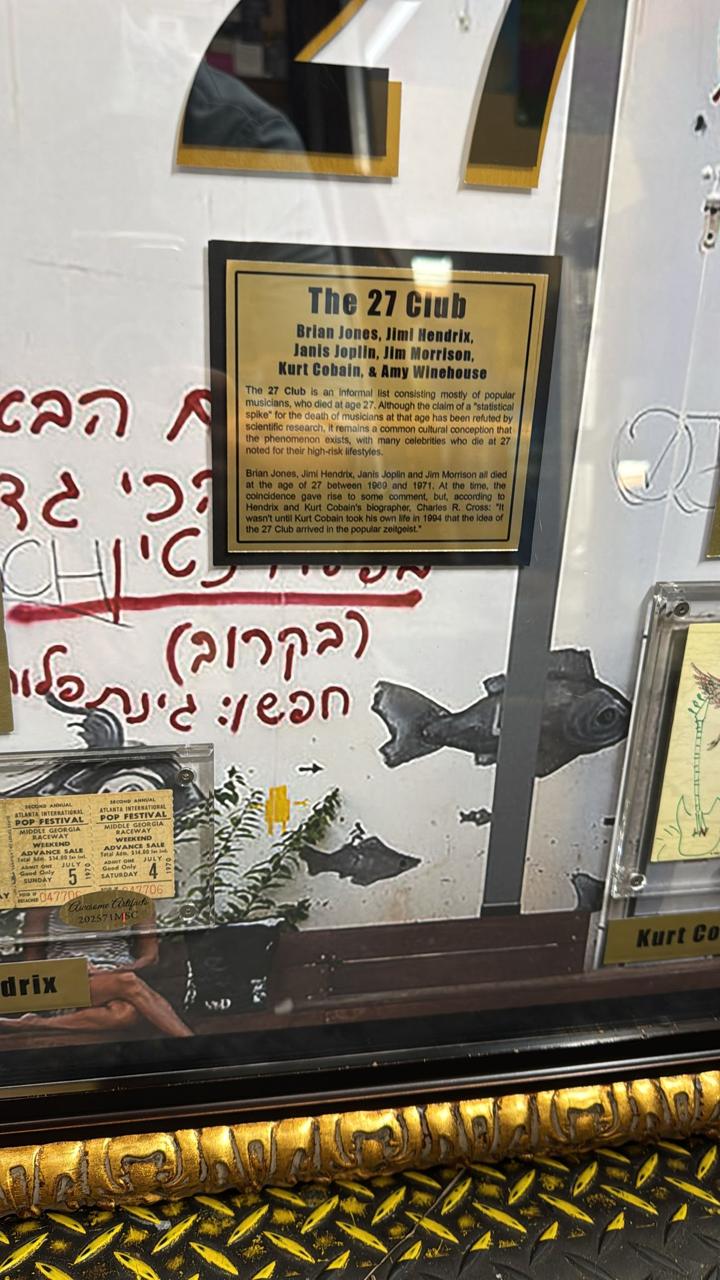 27
The 27 Club
Brian Jones, Jimi Hendrix,
Janis Joplin, Jim Morrison,
Kurt Cobain, & Amy Winehouse
The 27 Club is an informal list consisting mostly of popular
musicians, who died at age 27. Although the claim of a "statistical
spike" for the death of musicians at that age has been refuted by
scientific research, it remains a common cultural conception that
the phenomenon exists, with many celebrities who die at 27
noted for their high-risk lifestyles.
Brian Jones, Jimi Hendrix, Janis Joplin and Jim Morrison all died
at the age of 27 between 1969 and 1971. At the time, the
coincidence gave rise to some comment, but, according to
Hendrix and Kurt Cobain's biographer, Charles R. Cross: "It
wasn't until Kurt Cobain took his own life in 1994 that the idea of
the 27 Club arrived in the popular zeitgeist."
הכי
CH
(בקרוב)
חפשו: גינת
SECOND ANNUAL
ATLANTA INTERNATIONAL
POP FESTIVAL
MIDDLE GEORGIA
RACEWAY
WEEKEND
ADVANCE SALE
ADMIT ONE JULY
Good Only 5 1970
SUNDAY
047706
SECOND ANNUAL
ATLANTA INTERNATIONAL
POP FESTIVAL
MIDDLE GEORGIA
RACEWAY
WEEKEND
ADVANCE SALE
Total Adm. $14.00
ADMIT ONE JULY
Good Only 4 1970
SATURDAY
047706
Awesome Artifacts
202571MSC
drix
Kurt Co